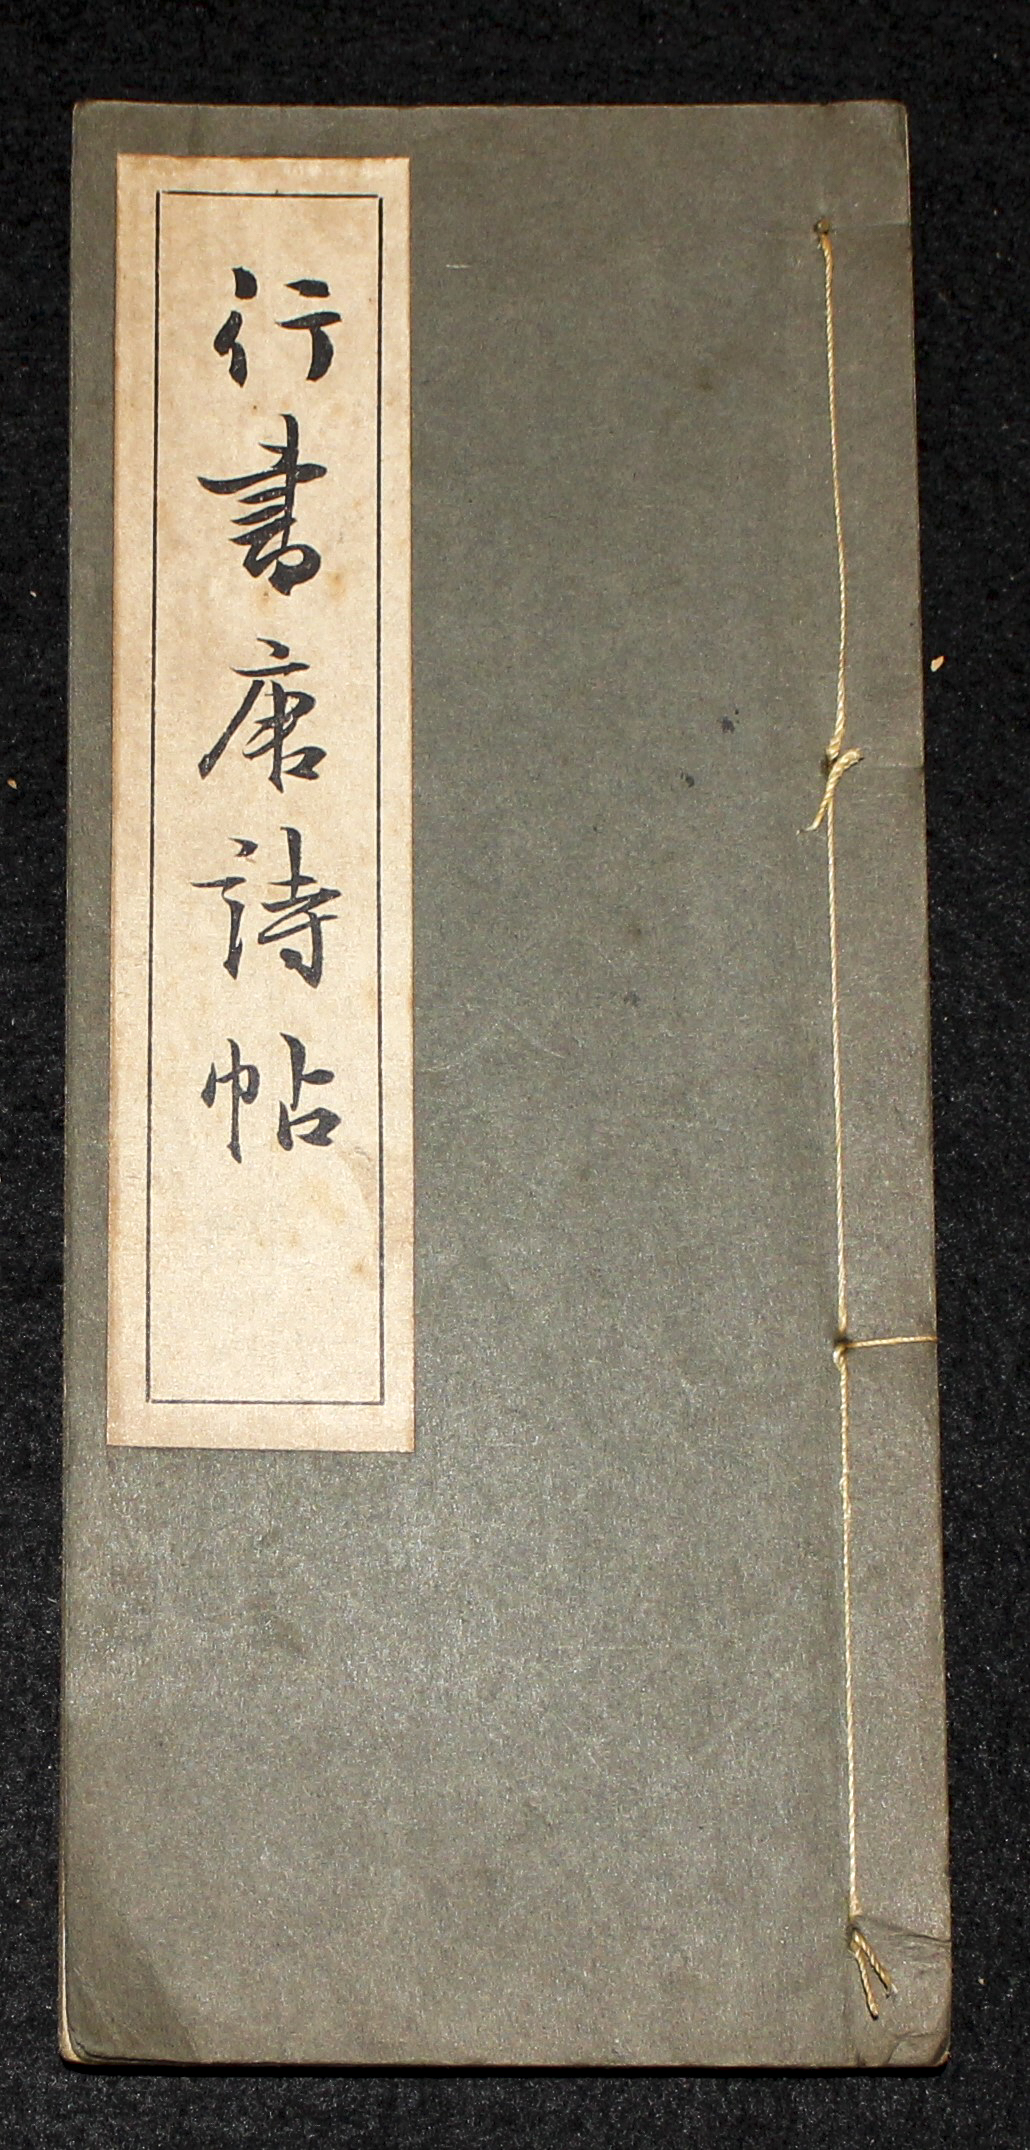 行書唐詩帖